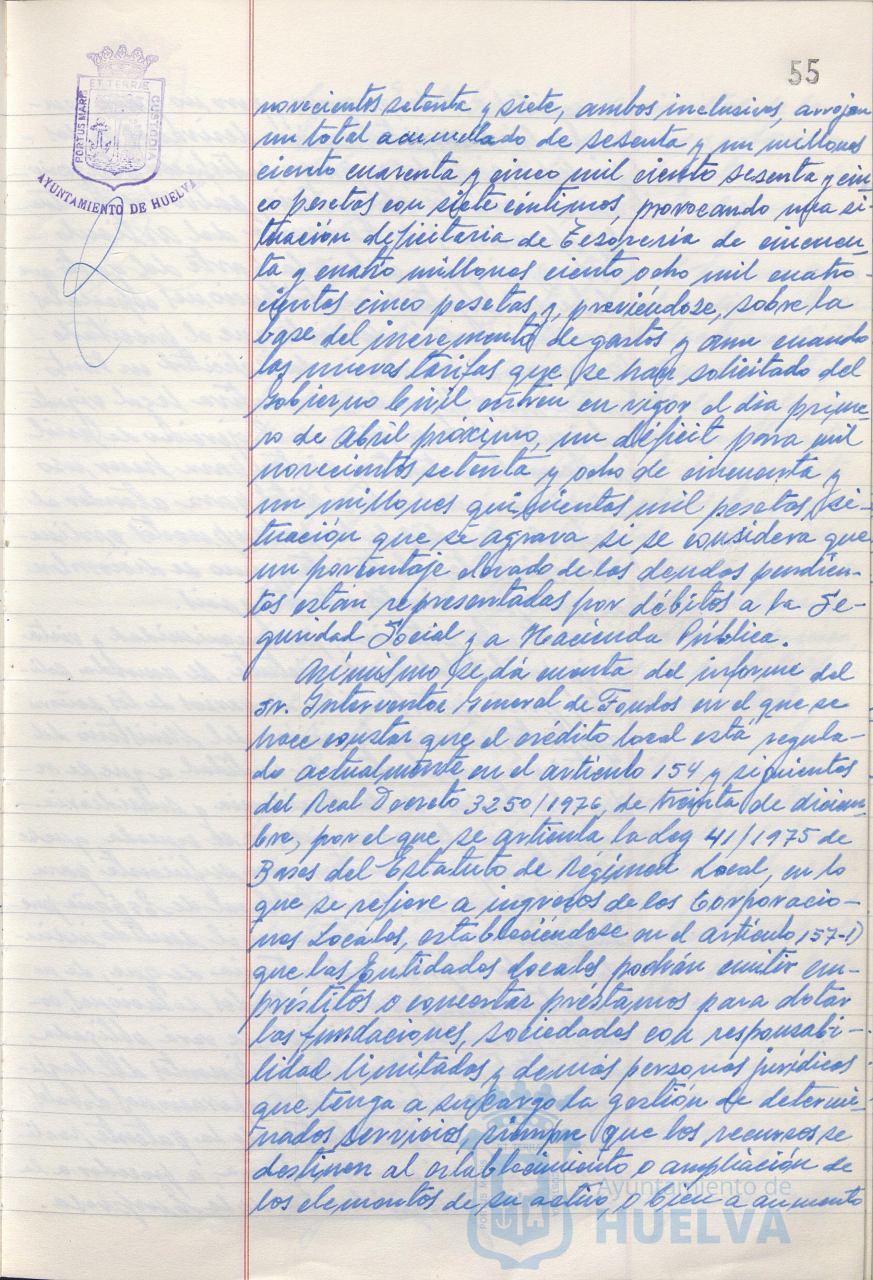 55
ET TERRÆ
PORTUS MARIS
CUSTODIA
AYUNTAMIENTO DE HUELVA
novecientos setenta y siete, ambos inclusives, arrojan
un total acumulado de sesenta y un millones
ciento cuarenta y cinco mil ciento sesenta y cin-
co pesetas con siete céntimos, provocando una si-
tuación deficitaria de Tesorería de cincuen-
ta y cuatro millones ciento ocho mil cuatro-
cientos cinco pesetas y, previéndose, sobre la
base del incremento de gastos y aun cuando
las nuevas tarifas que se han solicitado del
Gobierno Civil entren en vigor el dia prime-
ro de Abril próximo, un déficit para mil
novecientos setenta y ocho de cincuenta y
un millones quinientas mil pesetas, si-
tuación que se agrava si se considera que
un porcentaje elevado de las deudas pendien-
tes están representadas por débitos a la Se-
guridad Social y a Hacienda Pública.
Asimismo se dá cuenta del informe del
Sr. Interventor General de Fondos en el que se
hace constar que el crédito local está regula-
do actualmente en el artículo 154 y siguientes
del Real Decreto 3250/1976, de treinta de diciem-
bre, por el que se articula la Ley 41/1975 de
Bases del Estatuto de Régimen Local, en lo
que se refiere a ingresos de las Corporacio-
nes Locales, estableciéndose en el artículo 157-1)
que las Entidades Locales podrán emitir em-
préstitos o concertar préstamos para dotar
las fundaciones, sociedades con responsabi-
lidad limitada y demás personas jurídicas
que tenga a su cargo la gestión de determi-
nados servicios, siempre que los recursos se
destinen al establecimiento o ampliación de
los elementos de su activo, o bien a aumento
Ayuntamiento de
HUELVA